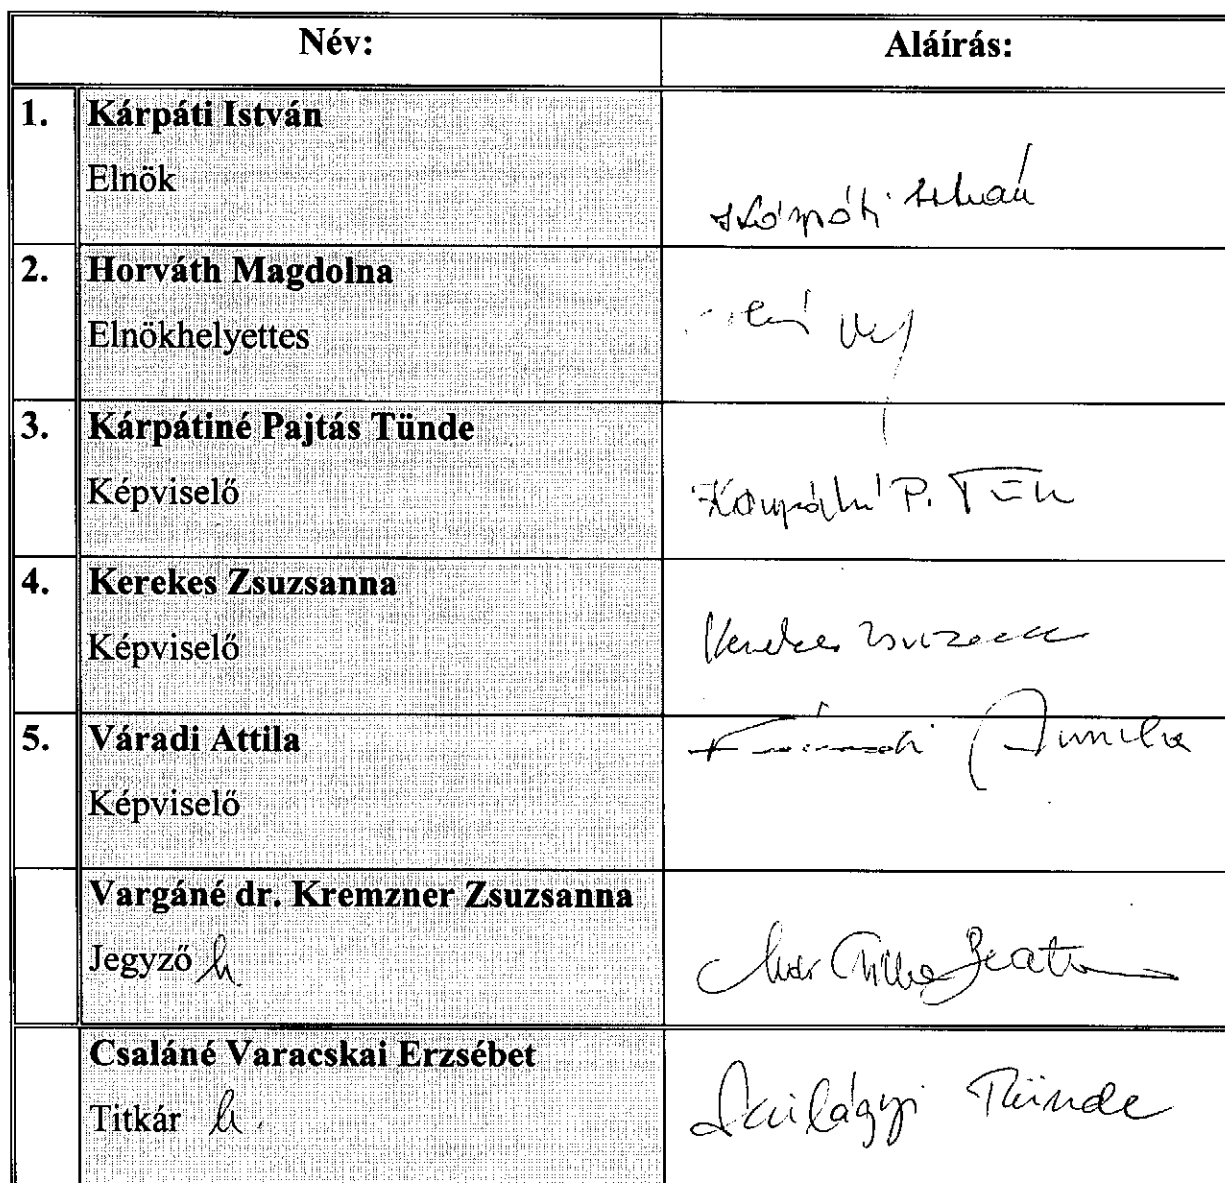 Név: Aláírás:
1. Kárpáti István
Elnök
Kárpáti István
2. Horváth Magdolna
Elnökhelyettes
3. Kárpátiné Pajtás Tünde
Képviselő
Kárpátiné P. Tünde
4. Kerekes Zsuzsanna
Képviselő
Kerekes Zsuzsanna
5. Váradi Attila
Váradi Attila
Képviselő
Vargáné dr. Kremzner Zsuzsanna
Jegyző h.
Beata
Csaláné Varacskai Erzsébet
Titkár h.
Szilágyi Tünde